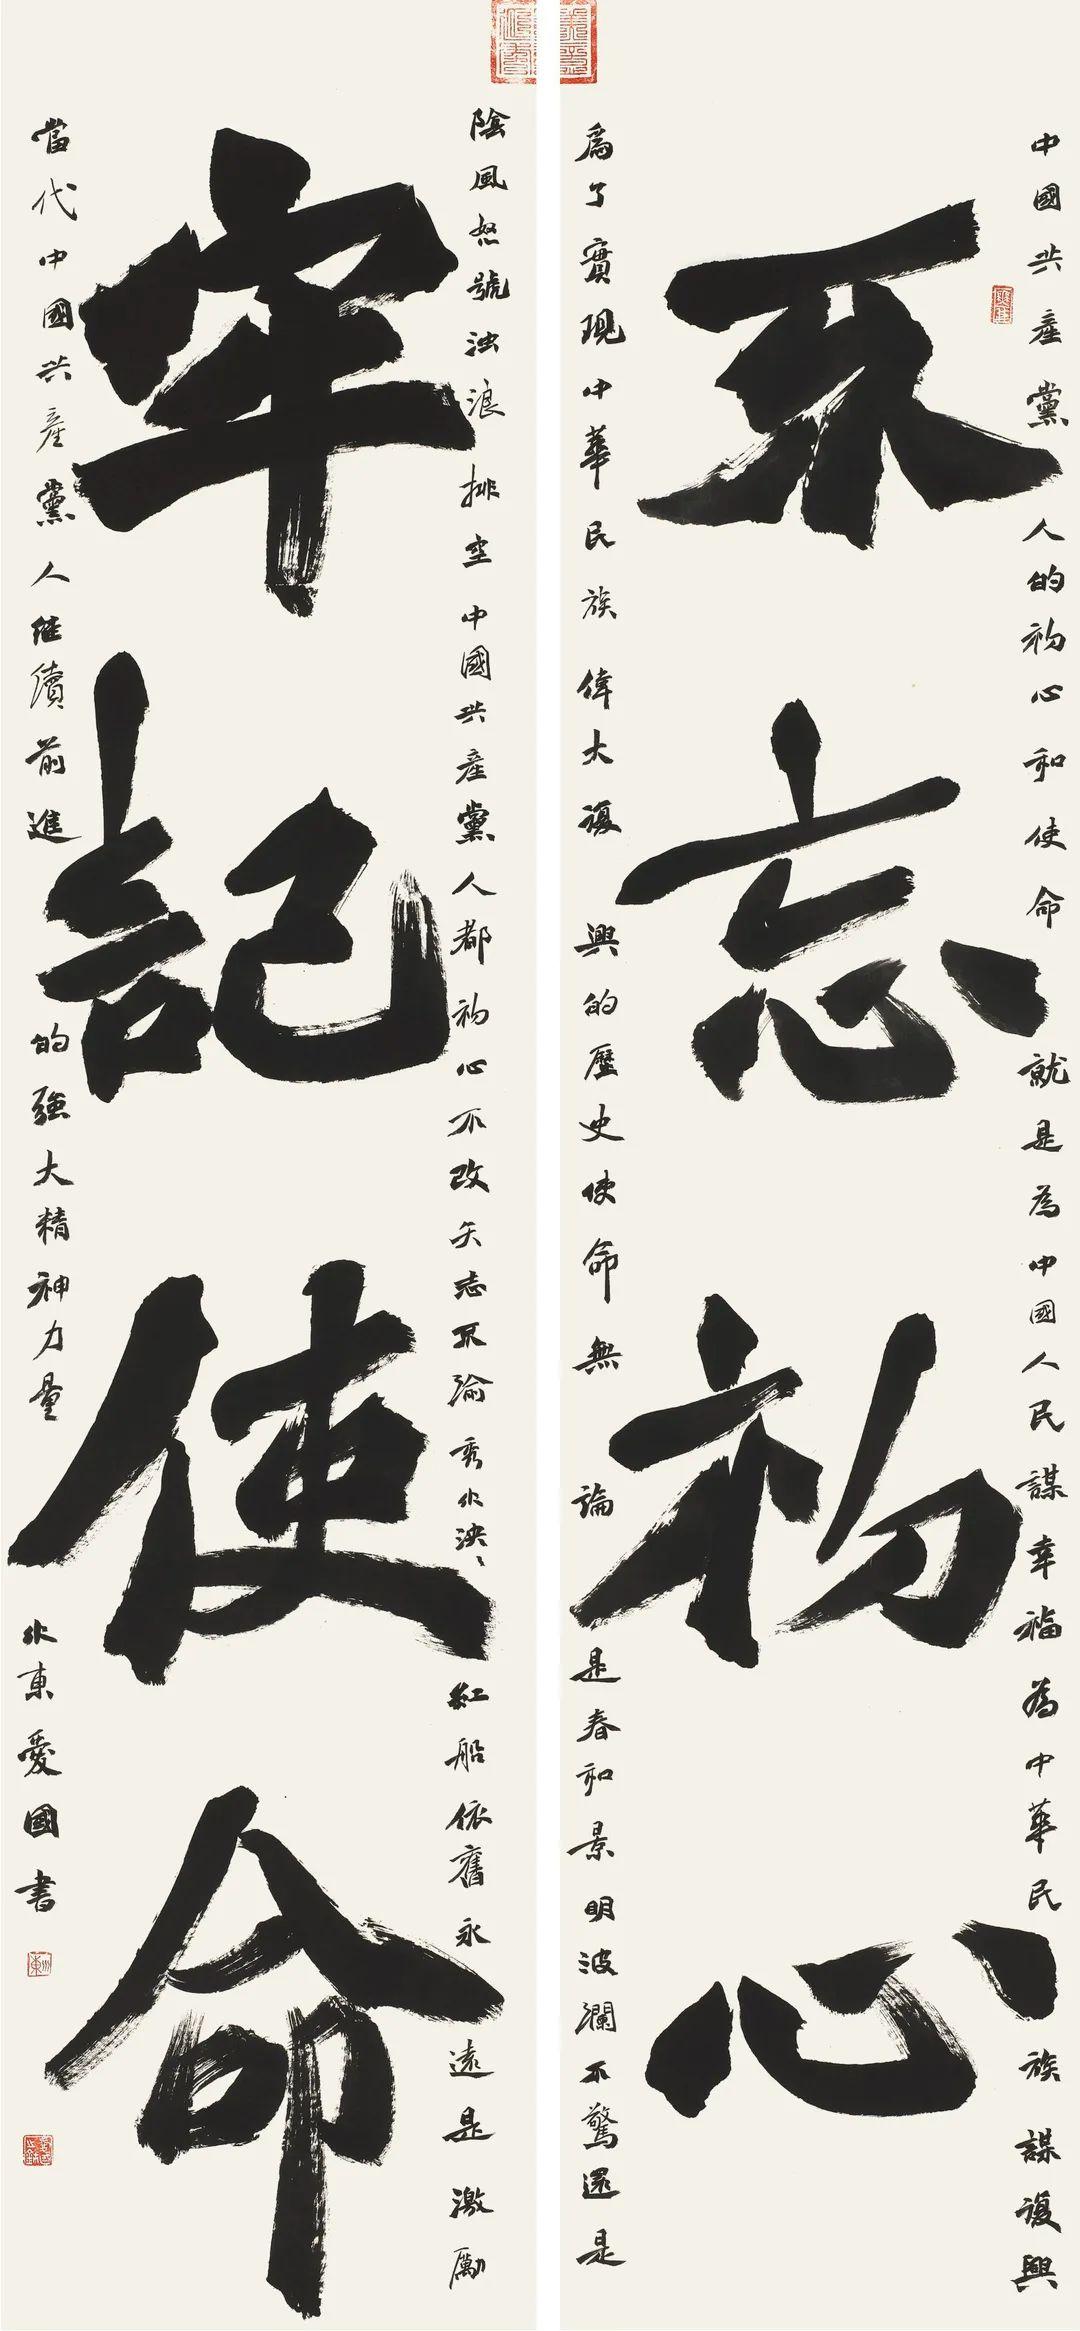 中國共產黨人的初心和使命就是為中國人民謀幸福為中華民族謀復興
不忘初心
爲了實現中華民族偉大復興的歷史使命無論是春和景明波瀾不驚還是
陰風怒號浊浪排空中國共產黨人都初心不改矢志不渝秀水泱〻紅船依舊永遠是激勵
牢記使命
當代中國共產黨人继續前進的強大精神力量
水東愛國書